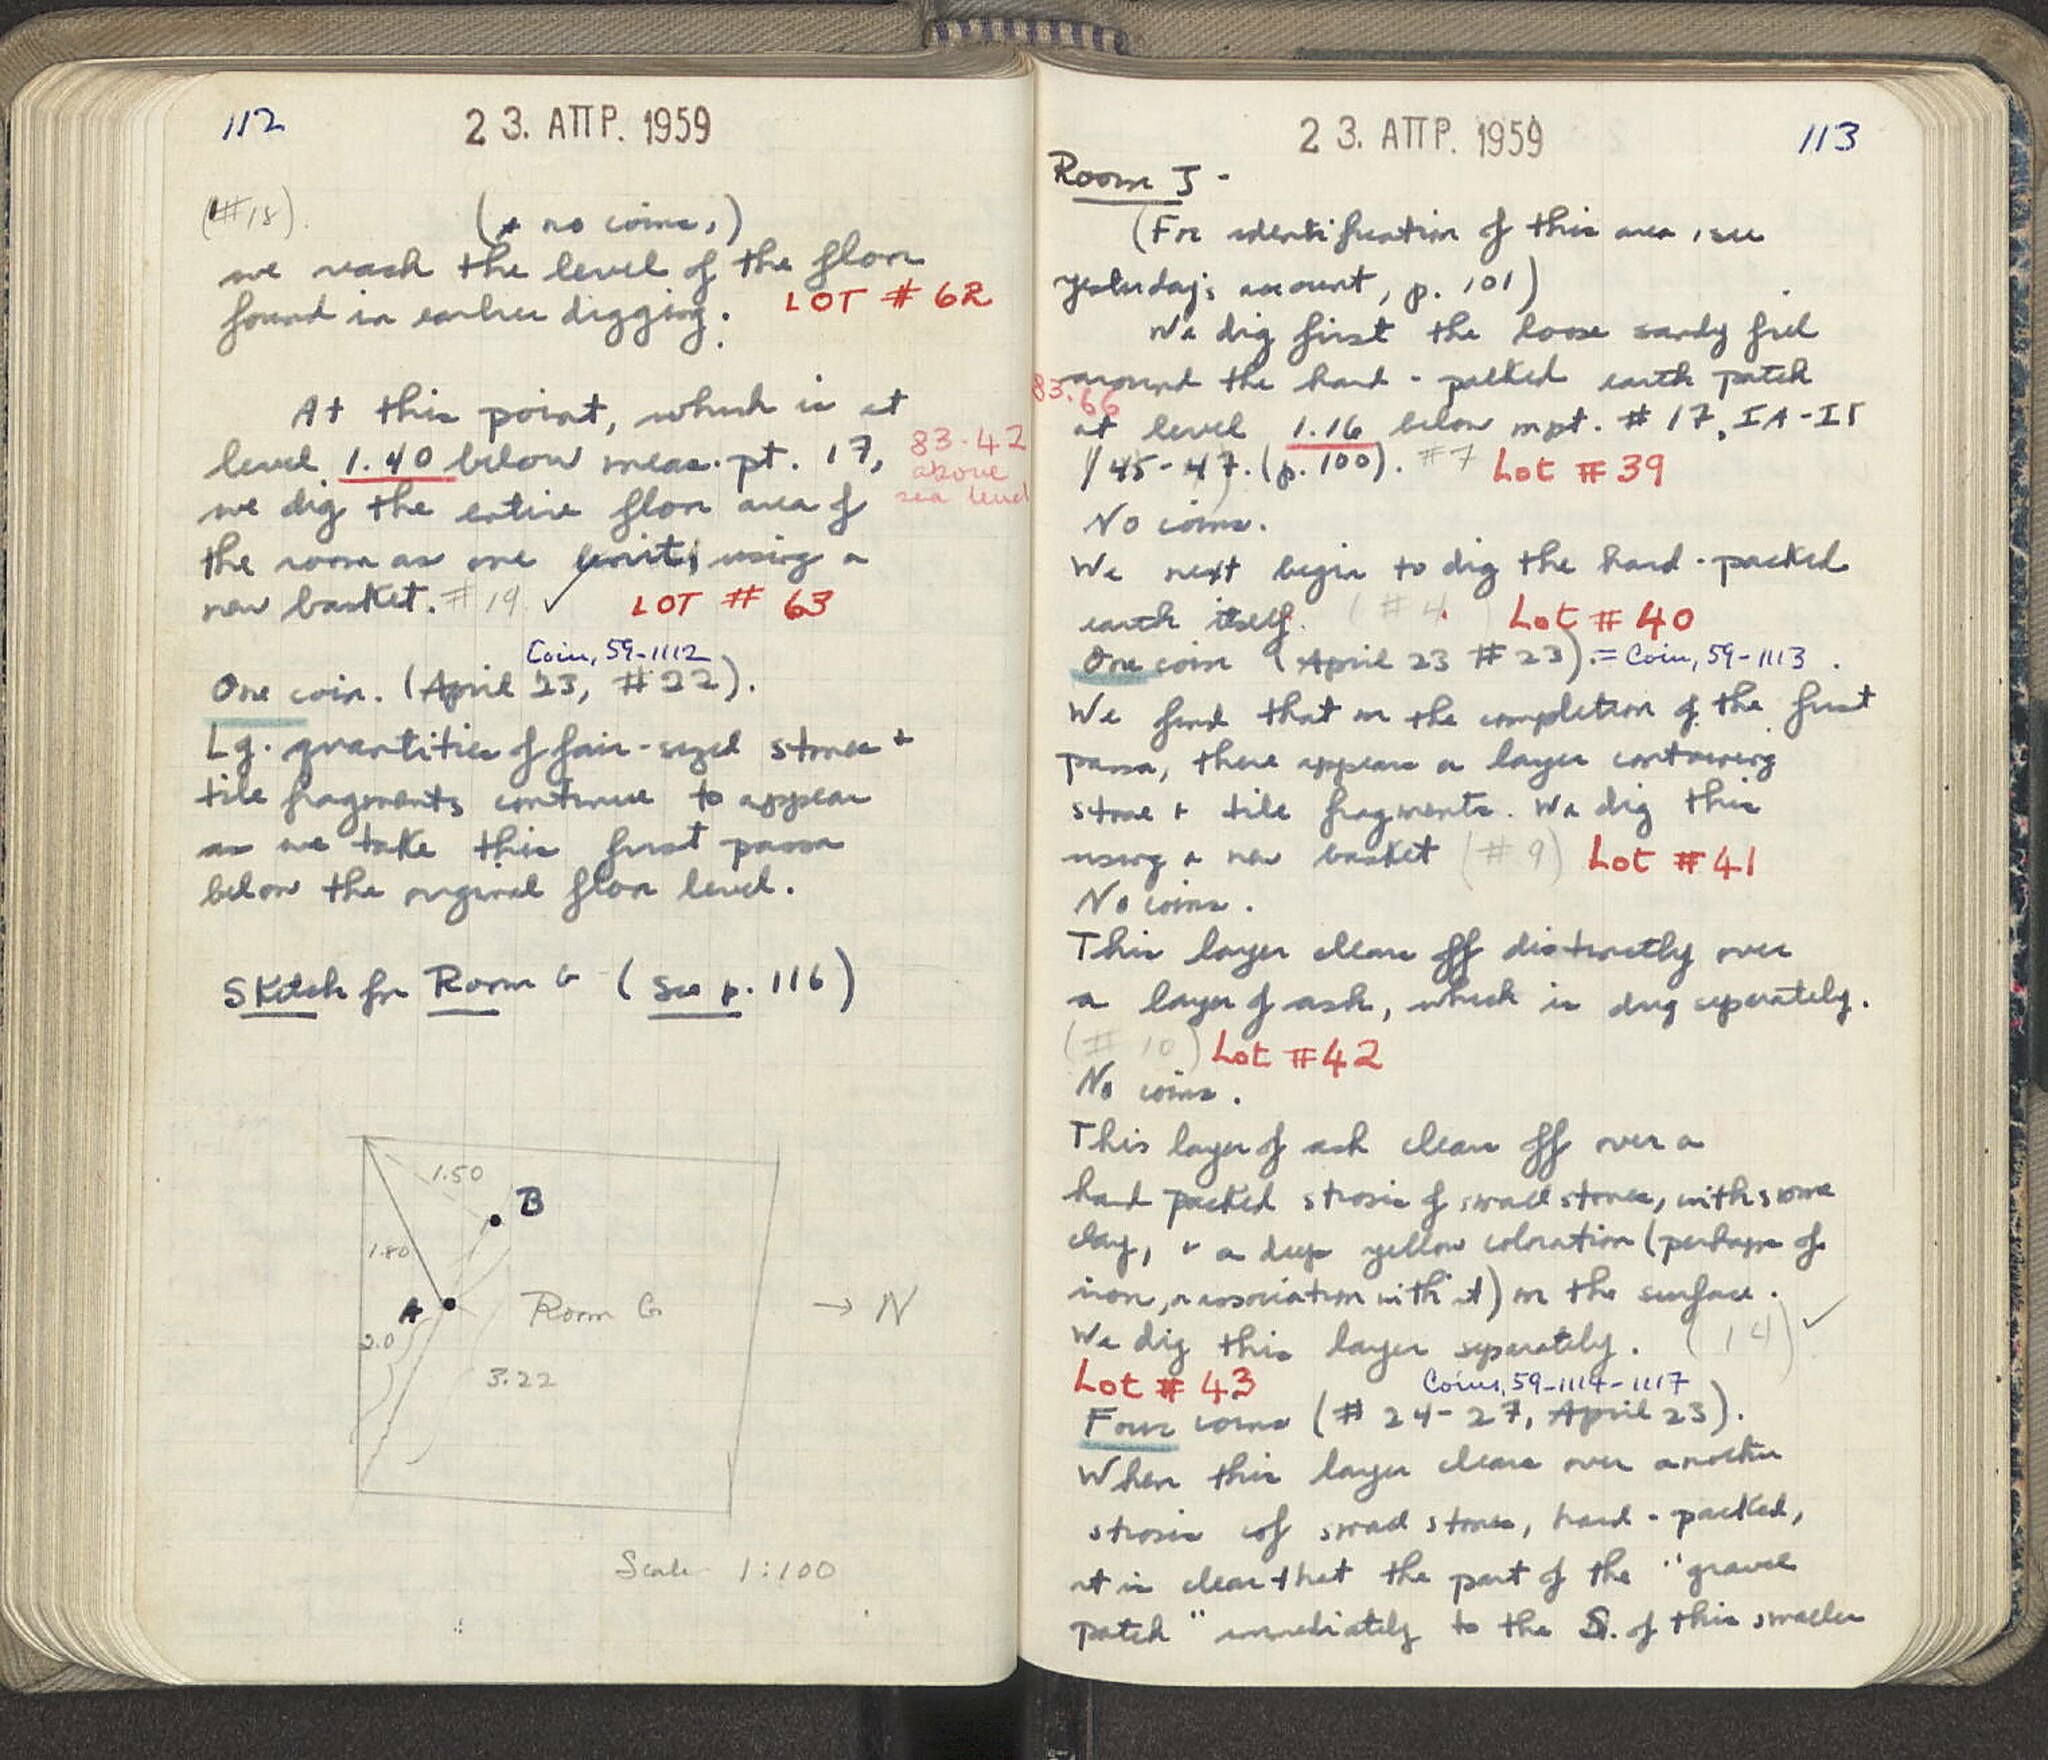 112
23. ΑΠΡ. 1959
(#18).
(+ no coins,)
we reach the level of the floor
found in earlier digging. LOT # 62
At this point, which is at
level 1.40 below meas. pt. 17,
83.42
above
sea level
we dig the entire floor area of
the room as one unit, using a
new basket. #19 ✓ LOT # 63
Coin, 59-1112
One coin. (April 23, #22).
Lg. quantities of fair-sized stones +
tile fragments continue to appear
as we take this first passa
below the original floor level.
Sketch for Room G (see p. 116)
1.50
B
1.80
A
Room G
→ N
2.0
3.22
Scale 1:100
23. ΑΠΡ. 1959
113
Room J -
(For identification of this area, see
yesterday's account, p. 101)
We dig first the loose sandy fill
around the hard-packed earth patch
83.66
at level 1.16 below mpt. # 17, IA-IΓ
/ 45-47. (p. 100). #7 Lot # 39
No coins.
We next begin to dig the hard-packed
earth itself. (#4 Lot # 40
One coin (April 23 #23). = Coin, 59-1113.
We find that on the completion of the first
passa, there appears a layer containing
stone + tile fragments. We dig this
using a new basket (#9) Lot #41
No coins.
This layer clears off distinctly over
a layer of ash, which is dug seperately.
(# 10) Lot #42
No coins.
This layer of ash clears off over a
hard packed strosis of small stones, with some
clay, + a deep yellow coloration (perhaps of
iron, or association with it) on the surface.
We dig this layer seperately. (14) ✓
Lot # 43
Coins, 59-1114-1117
Four coins (# 24-27, April 23).
When this layer clears over another
strosis of small stones, hard-packed,
it is clear that the part of the "gravel
patch" immediately to the S. of this smaller